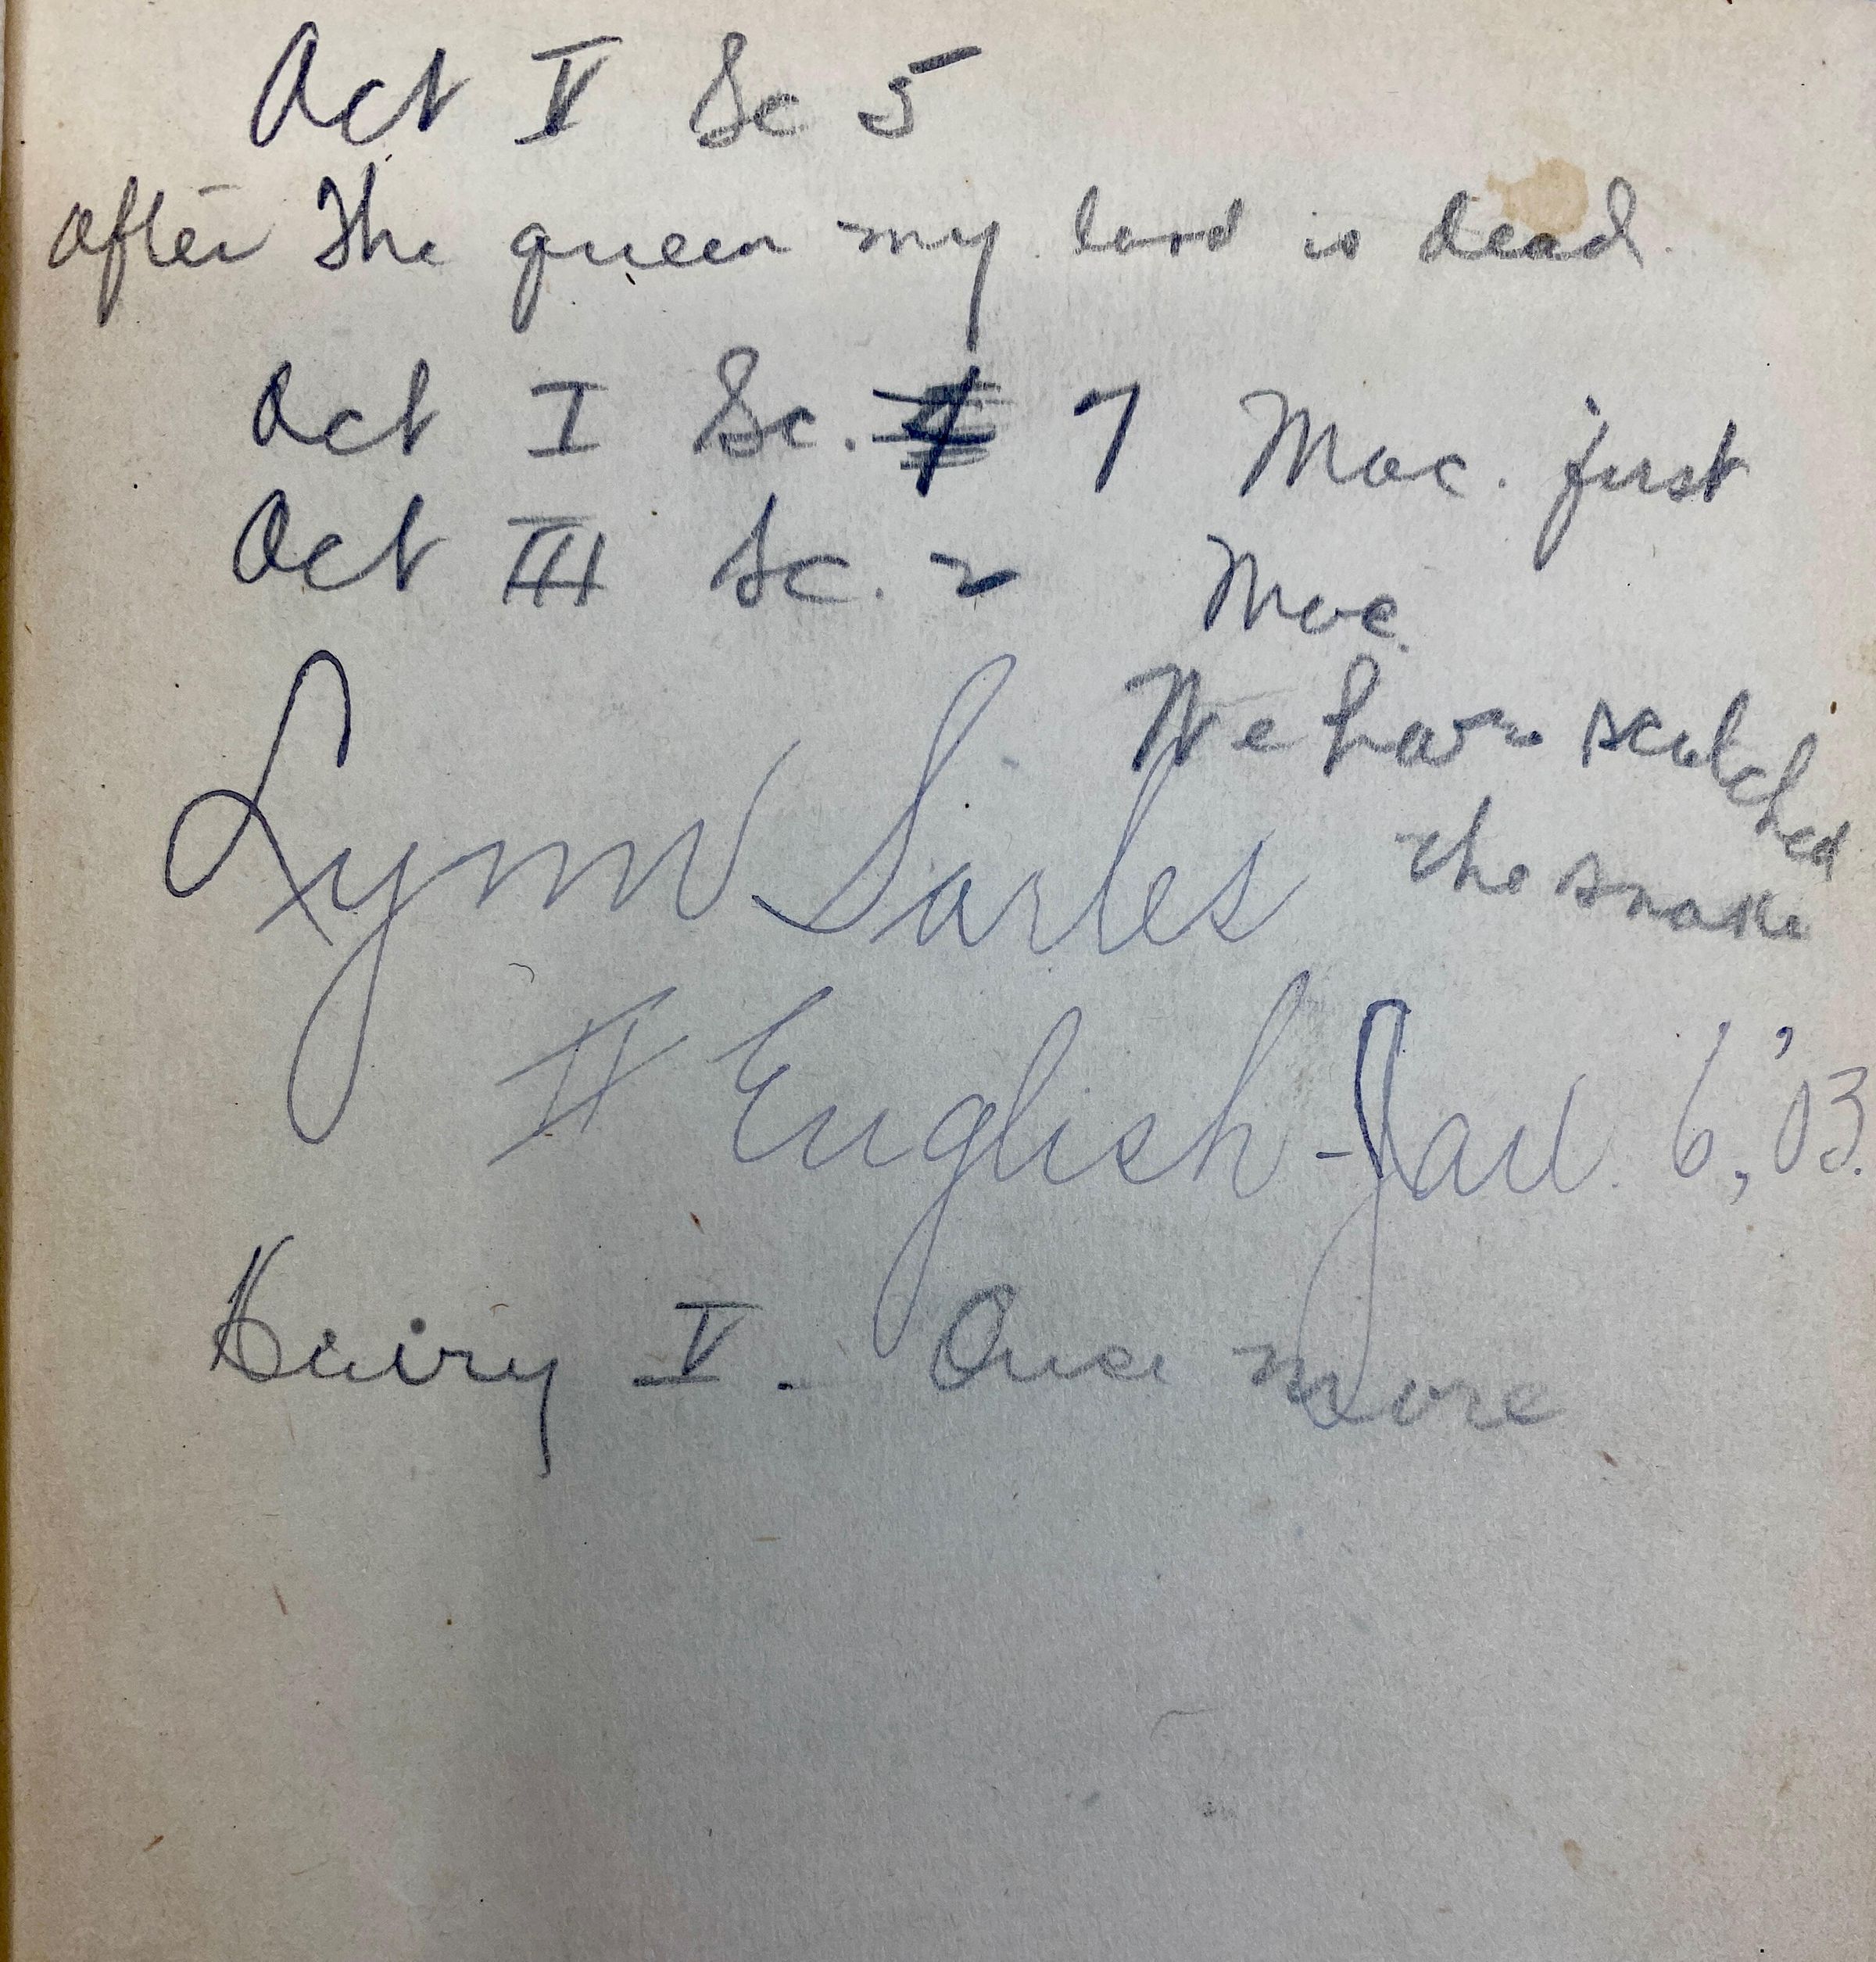 Act V Sc 5
after The queen my lord is dead.
Act I Sc. 7 Mac. first
Act III Sc. 2 Mac.
We have scotched
the snake
Lynn Sarles
II English - Jan. 6, '03.
Henry V. Once more